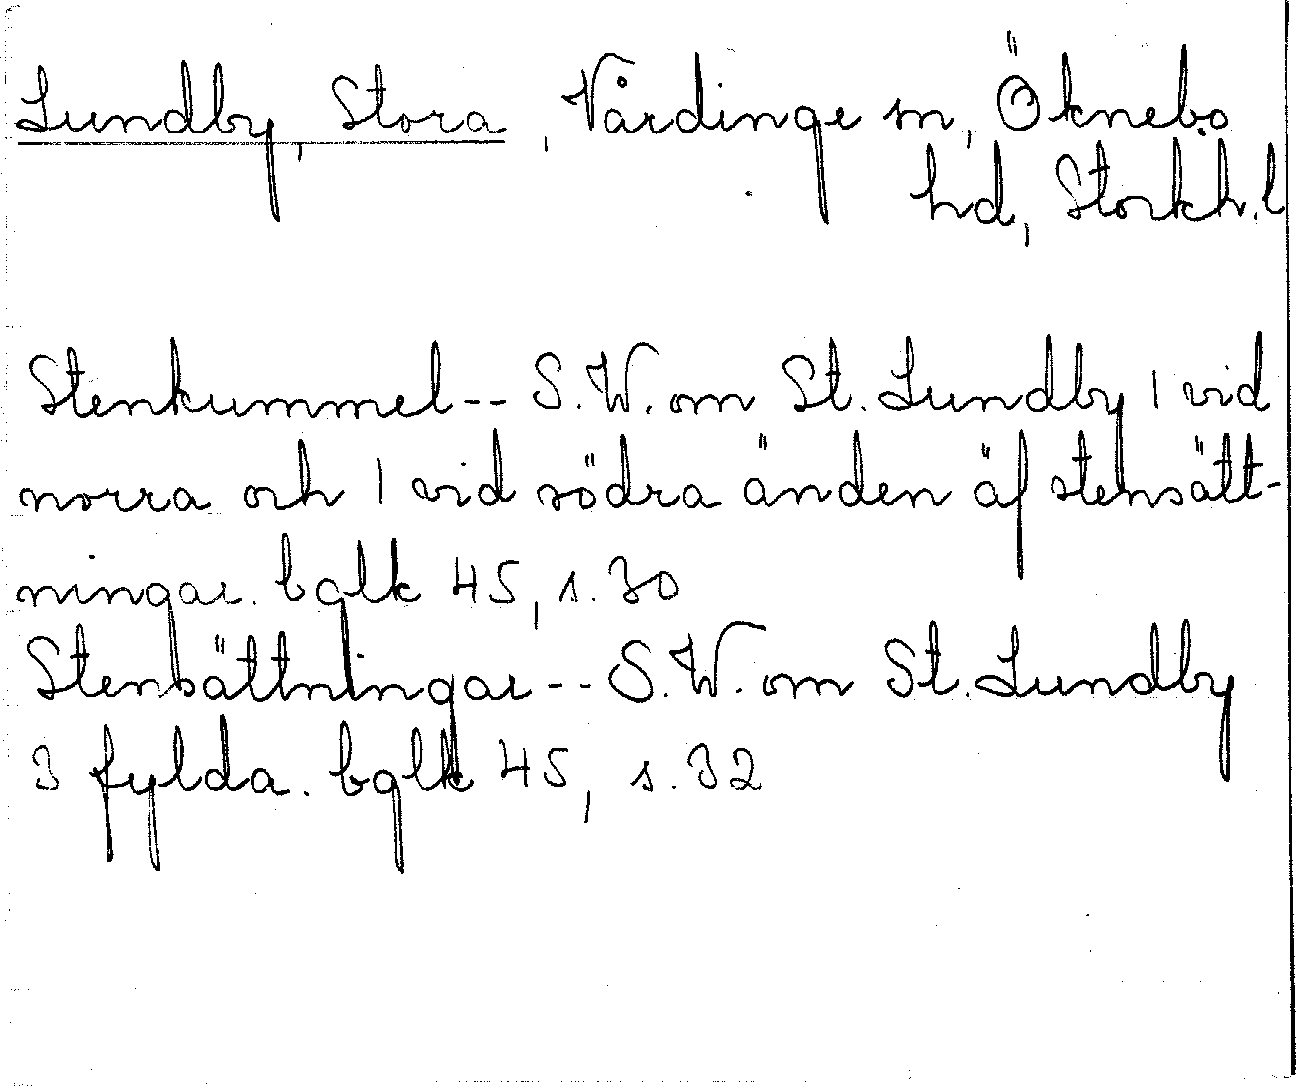 Lundby, Stora, Vårdinge sn, Öknebo
hd, Stockh. l
Stenkummel-- S.W. om St. Lundby 1 vid
norra och 1 vid södra änden äf stensätt-
ningar. bglk 45, s. 30
Stensättningar-- S.W. om St. Lundby
3 fylda. bglk 45, s. 32